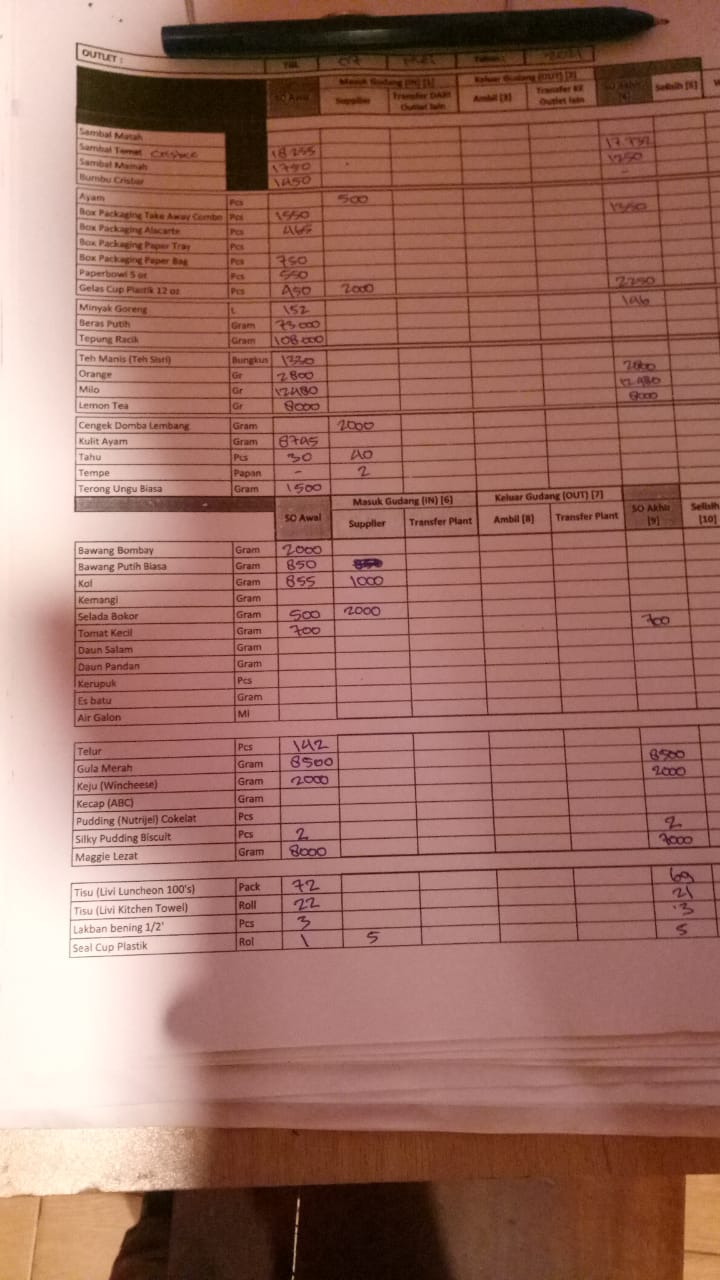 OUTLET :
Tgl. 07 Mei Tahun : 2021
SO Awal Masuk Gudang (IN) [1] Keluar Gudang (OUT) [2] SO Akhir Selisih [5]
Supplier Transfer DARI Outlet lain Ambil [3] Transfer KE Outlet lain
Sambal Matah
Sambal Tomat
Sambal Mamah 1750 1250
Bumbu Crisbar 1450 -
Ayam Pcs 500
Box Packaging Take Away Combo Pcs 1550 1350
Box Packaging Alacarte Pcs 465
Box Packaging Paper Tray Pcs
Box Packaging Paper Bag Pcs 750
Paperbowl 5 oz Pcs 550
Gelas Cup Plastik 12 oz Pcs 450 2000 2250
Minyak Goreng L 152 146
Beras Putih Gram 73000
Tepung Racik Gram 108000
Teh Manis (Teh Sisri) Bungkus
Orange Gr 2800 2800
Milo Gr 12480 12480
Lemon Tea Gr 8000 8000
Cengek Domba Lembang Gram 2000
Kulit Ayam Gram 8745
Tahu Pcs 30 40
Tempe Papan - 2
Terong Ungu Biasa Gram 1500
SO Awal Masuk Gudang (IN) [6] Keluar Gudang (OUT) [7] SO Akhir [9] Selisih [10]
Supplier Transfer Plant Ambil [8] Transfer Plant
Bawang Bombay Gram 2000
Bawang Putih Biasa Gram 850
Kol Gram 855 1000
Kemangi Gram
Selada Bokor Gram 500 2000
Tomat Kecil Gram 700 700
Daun Salam Gram
Daun Pandan Gram
Kerupuk Pcs
Es batu Gram
Air Galon Ml
Telur Pcs 142
Gula Merah Gram 8500 8500
Keju (Wincheese) Gram 2000 2000
Kecap (ABC) Gram
Pudding (Nutrijel) Cokelat Pcs
Silky Pudding Biscuit Pcs 2 2
Maggie Lezat Gram 8000 7000
Tisu (Livi Luncheon 100's) Pack 72 69
Tisu (Livi Kitchen Towel) Roll 22 21
Lakban bening 1/2' Pcs 3 3
Seal Cup Plastik Rol 1 5 5